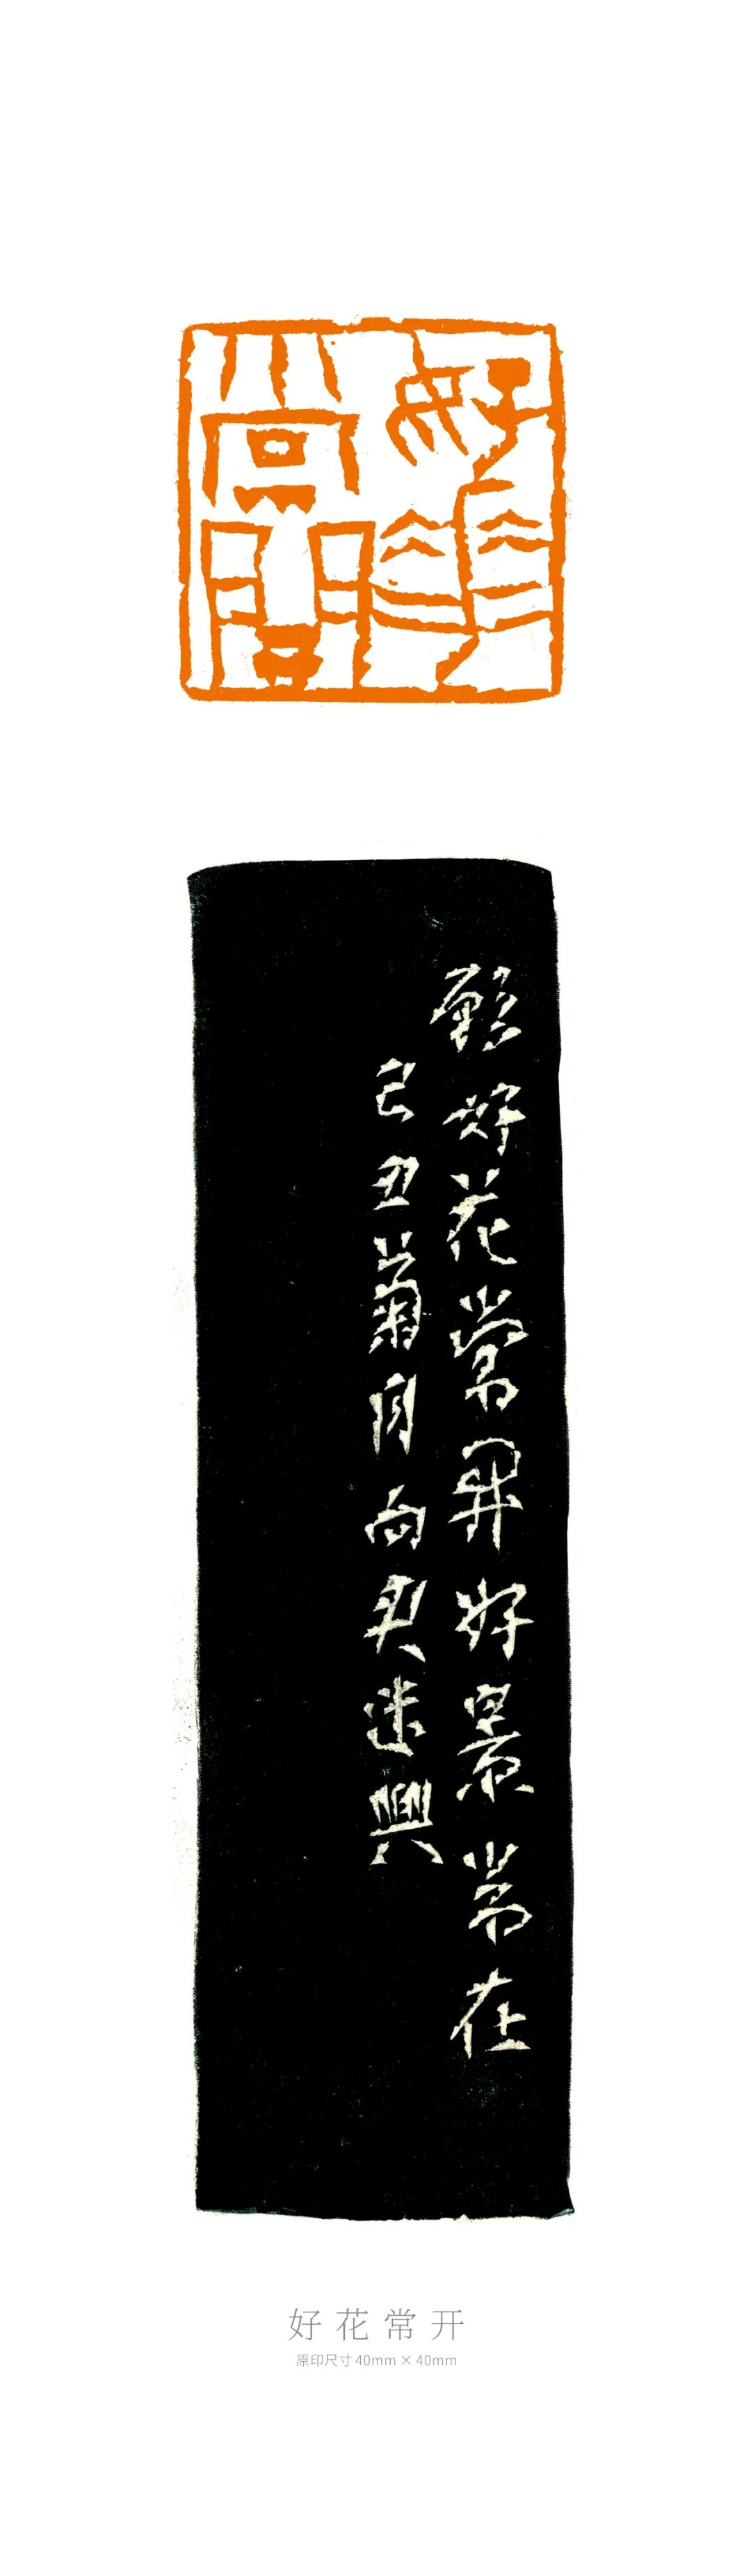 好花常開
願好花常開好景常在
己丑菊月向奐迷興
好花常开
原印尺寸 40mm × 40mm